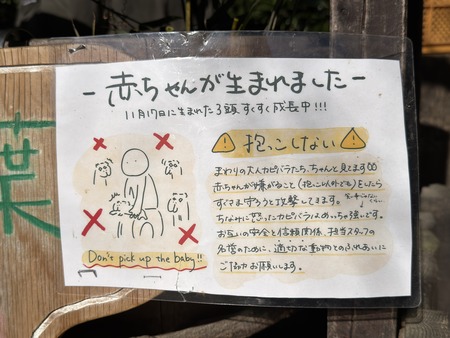 - 赤ちゃんが生まれました -
11月17日に生まれた3頭、すくすく成長中!!!
抱っこしない
まわりの大人カピバラたち、ちゃんと見てます
赤ちゃんが嫌がること(抱っこ以外でも)をしたら
すぐさま守ろうと攻撃してきます。
ちなみに怒ったカピバラはめっちゃ強いです。
お互いの安全と信頼関係、担当スタッフの
名誉のために、適切な動物とのふれあいに
ご協力お願いします。
Don't pick up the baby!!
葉